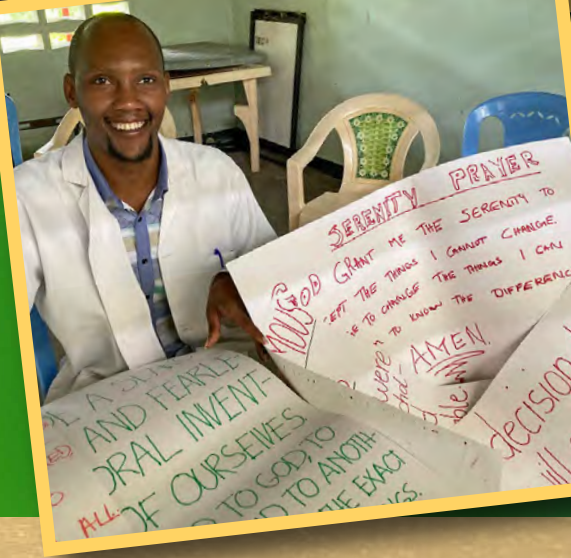 SERENITY PRAYER
GOD GRANT ME THE SERENITY TO
THE THINGS I CANNOT CHANGE.
TO CHANGE THE THINGS I CAN
TO KNOW THE DIFFERENC
AMEN.
were
decision
AND FEARLE
ORAL INVENT-
OF OURSELVES.
TO GOD, TO
D TO ANOTH-
THE EXACT
NGS.
ALL